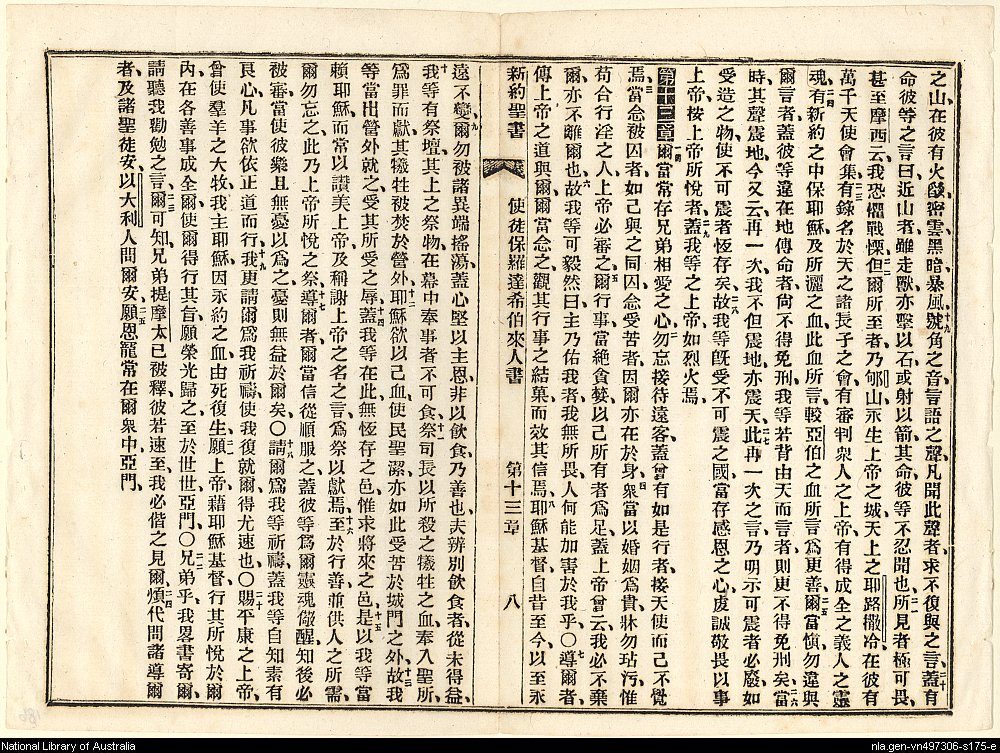 之山在彼有火燄密雲黑暗暴風、十九號角之音言語之聲凡聞此聲者、求不復與之言、二十蓋有
命彼等之言曰近山者雖走獸亦擊以石或射以箭其命彼等不忍聞也、二一所見者極可畏、
甚至摩西云我恐懼戰慄、二二但爾所至者乃郇山永生上帝之城天上之耶路撒冷在彼有
萬千天使會集、二三有錄名於天之諸長子之會、有審判衆人之上帝有得成全之義人之靈
魂、二四有新約之中保耶穌及所灑之血此血所言較亞伯之血所言爲更善、二五爾當愼勿違與
爾言者蓋彼等違在地傳命者尙不得免刑我等若背由天而言者則更不得免刑矣、二六當
時其聲震地今又云再一次我不但震地亦震天、二七此再一次之言乃明示可震者必廢如
受造之物使不可震者恆存矣、二八故我等旣受不可震之國當存感恩之心虔誠敬畏以事
上帝按上帝所悅者、二九蓋我等之上帝如烈火焉、
第十三章一爾當常存兄弟相愛之心、二勿忘接待遠客蓋曾有如是行者接天使而己不覺
焉、三當念被囚者如己與之同囚念受苦者因爾亦在於身、四衆當以婚姻爲貴牀勿玷污惟
苟合行淫之人上帝必審之、五爾行事當絶貪婪以己所有者爲足蓋上帝曾云我必不棄
爾亦不離爾也、六故我等可毅然曰主乃佑我者我無所畏人何能加害於我乎〇七導爾者、
傳上帝之道與爾爾當念之、觀其行事之結菓而效其信焉、八耶穌基督自昔至今以至永
新約聖書 使徒保羅達希伯來人書 第十三章 八
遠不變、九爾勿被諸異端搖蕩蓋心堅以主恩非以飲食乃善也、夫辨別飲食者從未得益、
十我等有祭壇其上之祭物在幕中奉事者不可食、十一祭司長以所殺之犧牲之血奉入聖所、
爲罪而獻其犧牲被焚於營外、十二耶穌欲以己血使民聖潔亦如此受苦於城門之外、十三故我
等當出營外就之受其所受之辱、十四蓋我等在此無恆存之邑惟求將來之邑、十五是以我等當
賴耶穌而常以讃美上帝及稱謝上帝之名之言爲祭以獻焉、十六至於行善並供人之所需、
爾勿忘之此乃上帝所悅之祭、十七導爾者爾當信從順服之蓋彼等爲爾靈魂儆醒知後必
被審當使彼樂且無憂以爲之憂則無益於爾矣〇十八請爾爲我等祈禱蓋我等自知素有
艮心凡事欲依正道而行、十九我更請爾爲我祈禱使我復就爾得尤速也〇二十賜平康之上帝、
曾使羣羊之大牧我主耶穌因永約之血由死復生、二一願上帝藉耶穌基督行其所悅於爾
內在各善事成全爾使爾得行其旨願榮光歸之至於世世亞門〇二二兄弟乎我畧書寄爾、
請聽我勸勉之言、二三爾可知兄弟提摩太已被釋彼若速至我必偕之見爾、二四煩代問諸導爾
者及諸聖徒安以大利人問爾安、二五願恩寵常在爾衆中亞門、
National Library of Australia
nla.gen-vn497306-s175-e